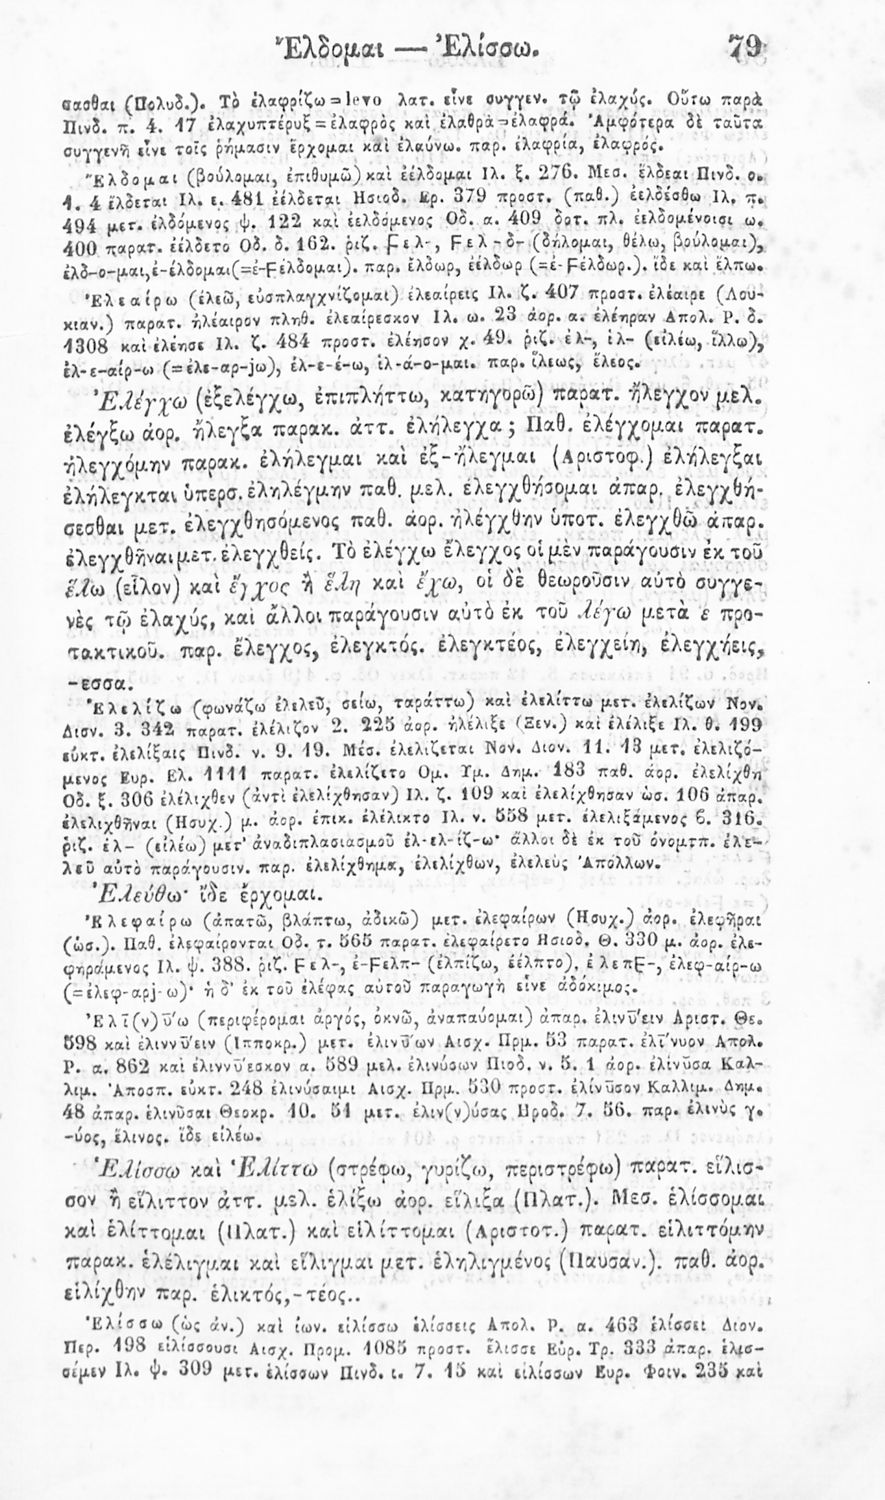 Ἔλδομαι — Ἑλίσσω. 79
σασθαι (Πολυδ.). Τὸ ἐλαφρίζω = levo λατ. εἶνε συγγεν. τῷ ἐλαχύς. Οὕτω παρὰ
Πινδ. π. 4. 17 ἐλαχυπτέρυξ = ἐλαφρὸς καὶ ἐλαθρὰ = ἐλαφρά. Ἀμφότερα δὲ ταῦτα
συγγενῆ εἶνε τοῖς ῥήμασιν ἔρχομαι καὶ ἐλαύνω. παρ. ἐλαφρία, ἐλαφρός.
Ἔλδομαι (βούλομαι, ἐπιθυμῶ) καὶ ἐέλδομαι Ιλ. ξ. 276. Μεσ. ἔλδεαι Πινδ. ο.
1. 4 ἔλδεται Ιλ. ε. 481 ἐέλδεται Ησιοδ. Ερ. 379 προστ. (παθ.) ἐελδέσθω Ιλ. π.
494 μετ. ἐλδόμενος ψ. 122 καὶ ἐελδόμενος Οδ. α. 409 δοτ. πλ. ἐελδομένοισι ω.
400 παρατ. ἐέλδετο Οδ. δ. 162. ῥιζ. Ϝελ-, Ϝελ-δ- (δήλομαι, θέλω, βούλομαι),
ἐλδ-ο-μαι, ἐ-έλδομαι (=ἐ-Ϝέλδομαι). παρ. ἔλδωρ, ἐέλδωρ (=ἐ-Ϝέλδωρ.). ἴδε καὶ ἔλπω.
Ἐλεαίρω (ἐλεῶ, εὐσπλαγχνίζομαι) ἐλεαίρεις Ιλ. ζ. 407 προστ. ἐλέαιρε (Λου-
κιαν.) παρατ. ἠλέαιρον πληθ. ἐλεαίρεσκον Ιλ. ω. 23 ἀορ. α. ἐλέηραν Απολ. Ρ. δ.
1308 καὶ ἐλέησε Ιλ. ζ. 484 προστ. ἐλέησον χ. 49. ῥιζ. ἐλ-, ἰλ- (εἰλέω, ἴλλω),
ἐλ-ε-αίρ-ω (=ἐλε-αρ-jω), ἐλ-ε-έ-ω, ἱλ-ά-ο-μαι. παρ. ἵλεως, ἔλεος.
Ἐλέγχω (ἐξελέγχω, ἐπιπλήττω, κατηγορῶ) παρατ. ἤλεγχον μελ.
ἐλέγξω ἀορ. ἤλεγξα παρακ. ἀττ. ἐλήλεγχα; Παθ. ἐλέγχομαι παρατ.
ἠλεγχόμην παρακ. ἐλήλεγμαι καὶ ἐξ-ήλεγμαι (Αριστοφ.) ἐλήλεγξαι
ἐλήλεγκται ὑπερσ. ἐληλέγμην παθ. μελ. ἐλεγχθήσομαι ἀπαρ. ἐλεγχθή-
σεσθαι μετ. ἐλεγχθησόμενος παθ. ἀορ. ἠλέγχθην ὑποτ. ἐλεγχθῶ ἀπαρ.
ἐλεγχθῆναι μετ. ἐλεγχθείς. Τὸ ἐλέγχω ἔλεγχος οἱ μὲν παράγουσιν ἐκ τοῦ
ἕλω (εἷλον) καὶ ἔγχος ἢ ἕλη καὶ ἔχω, οἱ δὲ θεωροῦσιν αὐτὸ συγγε-
νὲς τῷ ἐλαχύς, καὶ ἄλλοι παράγουσιν αὐτὸ ἐκ τοῦ λέγω μετὰ ε προ-
τακτικοῦ. παρ. ἔλεγχος, ἐλεγκτός. ἐλεγκτέος, ἐλεγχείη, ἐλεγχήεις,
-εσσα.
Ἐλελίζω (φωνάζω ἐλελεῦ, σείω, ταράττω) καὶ ἐλελίττω μετ. ἐλελίζων Νον.
Διον. 3. 342 παρατ. ἐλέλιζον 2. 225 ἀορ. ἠλέλιξε (Ξεν.) καὶ ἐλέλιξε Ιλ. θ. 199
εὐκτ. ἐλελίξαις Πινδ. ν. 9. 19. Μέσ. ἐλελίζεται Νον. Διον. 11. 13 μετ. ἐλελιζό-
μενος Ευρ. Ελ. 1111 παρατ. ἐλελίζετο Ομ. Υμ. Δημ. 183 παθ. ἀορ. ἐλελίχθη
Οδ. ξ. 306 ἐλέλιχθεν (ἀντὶ ἐλελίχθησαν) Ιλ. ζ. 109 καὶ ἐλελίχθησαν ὡσ. 106 ἀπαρ.
ἐλελιχθῆναι (Ησυχ.) μ. ἀορ. ἐπικ. ἐλέλικτο Ιλ. ν. 558 μετ. ἐλελιξάμενος β. 316.
ῥιζ. ἐλ- (εἰλέω) μετ' ἀναδιπλασιασμοῦ ἐλ-ελ-ίζ-ω· ἄλλοι δὲ ἐκ τοῦ ὀνομτπ. ἐλε-
λεῦ αὐτὸ παράγουσιν. παρ. ἐλελίχθημα, ἐλελίχθων, ἐλελεὺς Ἀπόλλων.
Ἐλεύθω· ἴδε ἔρχομαι.
Ἐλεφαίρω (ἀπατῶ, βλάπτω, ἀδικῶ) μετ. ἐλεφαίρων (Ησυχ.) ἀορ. ἐλεφῆραι
(ὡσ.). Παθ. ἐλεφαίρονται Οδ. τ. 565 παρατ. ἐλεφαίρετο Ησιοδ. Θ. 330 μ. ἀορ. ἐλε-
φηράμενος Ιλ. ψ. 388. ῥιζ. Ϝελ-, ἐ-Ϝελπ- (ἐλπίζω, ἐέλπτο), ἐλεπϜ-, ἐλεφ-αίρ-ω
(=ἐλεφ-αρj-ω)· ἡ δ' ἐκ τοῦ ἐλέφας αὐτοῦ παραγωγὴ εἶνε ἀδόκιμος.
Ἐλῑ(ν)ύ̄ω (περιφέρομαι ἀργός, ὀκνῶ, ἀναπαύομαι) ἀπαρ. ἐλινύ̄ειν Αριστ. Θε.
598 καὶ ἐλιννύ̄ειν (Ιπποκρ.) μετ. ἐλινύ̄ων Αισχ. Πρμ. 53 παρατ. ἐλί̄νυον Απολ.
Ρ. α. 862 καὶ ἐλιννύ̄εσκον α. 589 μελ. ἐλινύσων Πιοδ. ν. 5. 1 ἀορ. ἐλίνῦσα Καλ-
λιμ. Ἀποσπ. εὐκτ. 248 ἐλινύσαιμι Αισχ. Πρμ. 530 προστ. ἐλίνῦσον Καλλιμ. Δημ.
48 ἀπαρ. ἐλινῦσαι Θεοκρ. 10. 51 μετ. ἐλιν(ν)ύσας Ηροδ. 7. 56. παρ. ἐλινὺς γ.
-ύος, ἔλινος. ἴδε εἰλέω.
Ἑλίσσω καὶ Ἑλίττω (στρέφω, γυρίζω, περιστρέφω) παρατ. εἵλισ-
σον ἢ εἵλιττον ἀττ. μελ. ἑλίξω ἀορ. εἵλιξα (Πλατ.). Μεσ. ἑλίσσομαι
καὶ ἑλίττομαι (Πλατ.) καὶ εἱλίττομαι (Αριστοτ.) παρατ. εἱλιττόμην
παρακ. ἑλέλιγμαι καὶ εἵλιγμαι μετ. ἑληλιγμένος (Παυσαν.). παθ. ἀορ.
εἱλίχθην παρ. ἑλικτός, -τέος..
Ἑλίσσω (ὡς ἀν.) καὶ ἰων. εἱλίσσω ἑλίσσεις Απολ. Ρ. α. 463 ἑλίσσει Διον.
Περ. 198 εἱλίσσουσι Αισχ. Προμ. 1085 προστ. ἕλισσε Εὐρ. Τρ. 333 ἀπαρ. ἑλισ-
σέμεν Ιλ. ψ. 309 μετ. ἑλίσσων Πινδ. ι. 7. 15 καὶ εἱλίσσων Ευρ. Φοιν. 235 καὶ